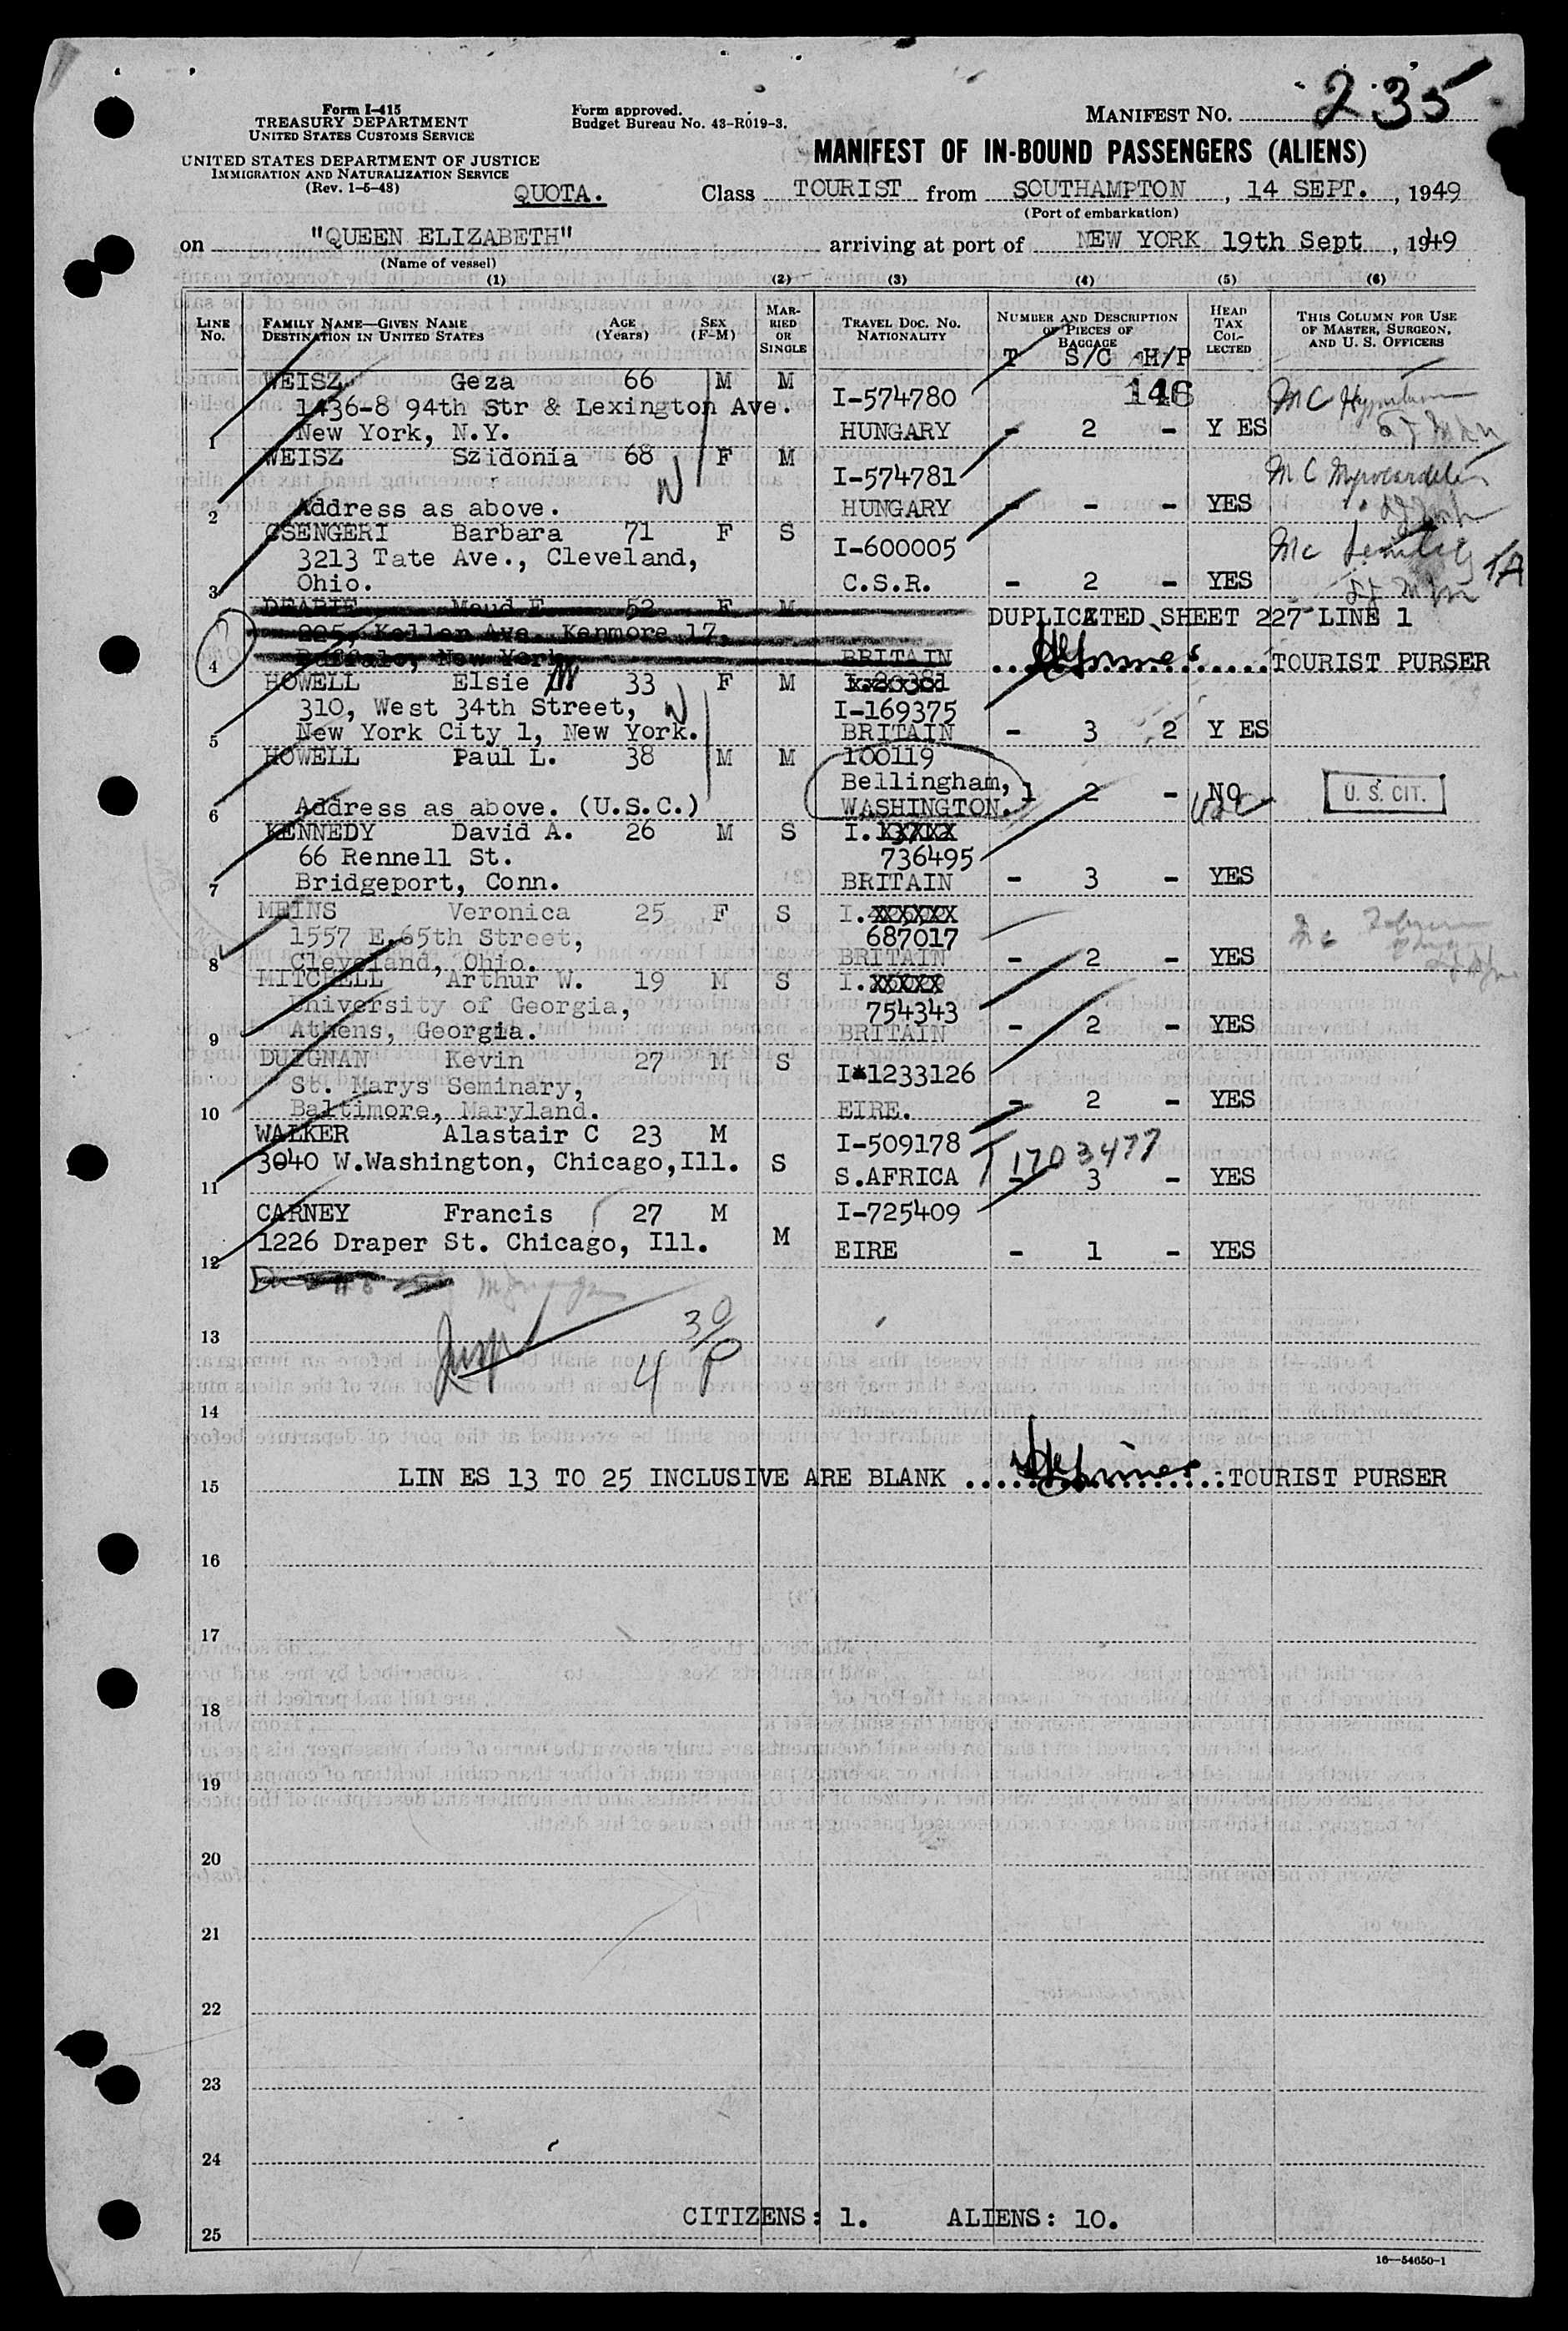 Form I-415
TREASURY DEPARTMENT
UNITED STATES CUSTOMS SERVICE
UNITED STATES DEPARTMENT OF JUSTICE
IMMIGRATION AND NATURALIZATION SERVICE
(Rev. 1-5-48)
QUOTA.
Form approved.
Budget Bureau No. 43-R019-3.
MANIFEST NO. 235
MANIFEST OF IN-BOUND PASSENGERS (ALIENS)
Class TOURIST from SOUTHAMPTON, 14 SEPT., 1949
(Port of embarkation)
on "QUEEN ELIZABETH" arriving at port of NEW YORK 19th Sept, 1949
(Name of vessel)
(1) (2) (3) (4) (5) (6)
LINE No. FAMILY NAME—GIVEN NAME DESTINATION IN UNITED STATES AGE (Years) SEX (F-M) MARRIED OR SINGLE TRAVEL DOC. NO. NATIONALITY NUMBER AND DESCRIPTION OF PIECES OF BAGGAGE HEAD TAX COLLECTED THIS COLUMN FOR USE OF MASTER, SURGEON, AND U. S. OFFICERS
T S/C H/P
146
WEISZ Geza 66 M M I-574780
1436-8 94th Str & Lexington Ave.
1 New York, N.Y. HUNGARY - 2 - Y ES
WEISZ Szidonia 68 F M I-574781
2 Address as above. HUNGARY - - - YES
CSENGERI Barbara 71 F S I-600005
3213 Tate Ave., Cleveland,
3 Ohio. C.S.R. - 2 - YES
DEARIE Maud E. 52 F M DUPLICATED SHEET 227 LINE 1
225, Keller Ave. Kenmore 17,
4 Buffalo, New York BRITAIN TOURIST PURSER
HOWELL Elsie M 33 F M
310, West 34th Street, I-169375
5 New York City 1, New York. BRITAIN - 3 2 Y ES
HOWELL Paul L. 38 M M 100119
Bellingham,
6 Address as above. (U.S.C.) WASHINGTON. 1 2 - NO USC U. S. CIT.
KENNEDY David A. 26 M S I.XXXXX
66 Rennell St. 736495
7 Bridgeport, Conn. BRITAIN - 3 - YES
MEINS Veronica 25 F S I.XXXXXX
1557 E.65th Street, 687017
8 Cleveland, Ohio. BRITAIN - 2 - YES
MITCHELL Arthur W. 19 M S I.XXXXX
University of Georgia, 754343
9 Athens, Georgia. BRITAIN - 2 - YES
DUIGNAN Kevin 27 M S I*1233126
St. Marys Seminary,
10 Baltimore, Maryland. EIRE. - 2 - YES
WALKER Alastair C 23 M I-509178
1703477
3040 W.Washington, Chicago,Ill. S
11 S.AFRICA - 3 - YES
CARNEY Francis 27 M I-725409
1226 Draper St. Chicago, Ill. M
12 EIRE - 1 - YES
13
14
15 LIN ES 13 TO 25 INCLUSIVE ARE BLANK TOURIST PURSER
16
17
18
19
20
21
22
23
24
CITIZENS: 1. ALIENS: 10.
25
16—54650-1